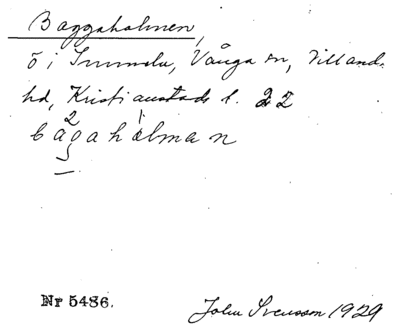 Baggaholmen,
ö i Immeln, Vånga sn, Villands
hd, Kristianstads l. 22
bagahelman
Nr 5486.
John Svensson 1929